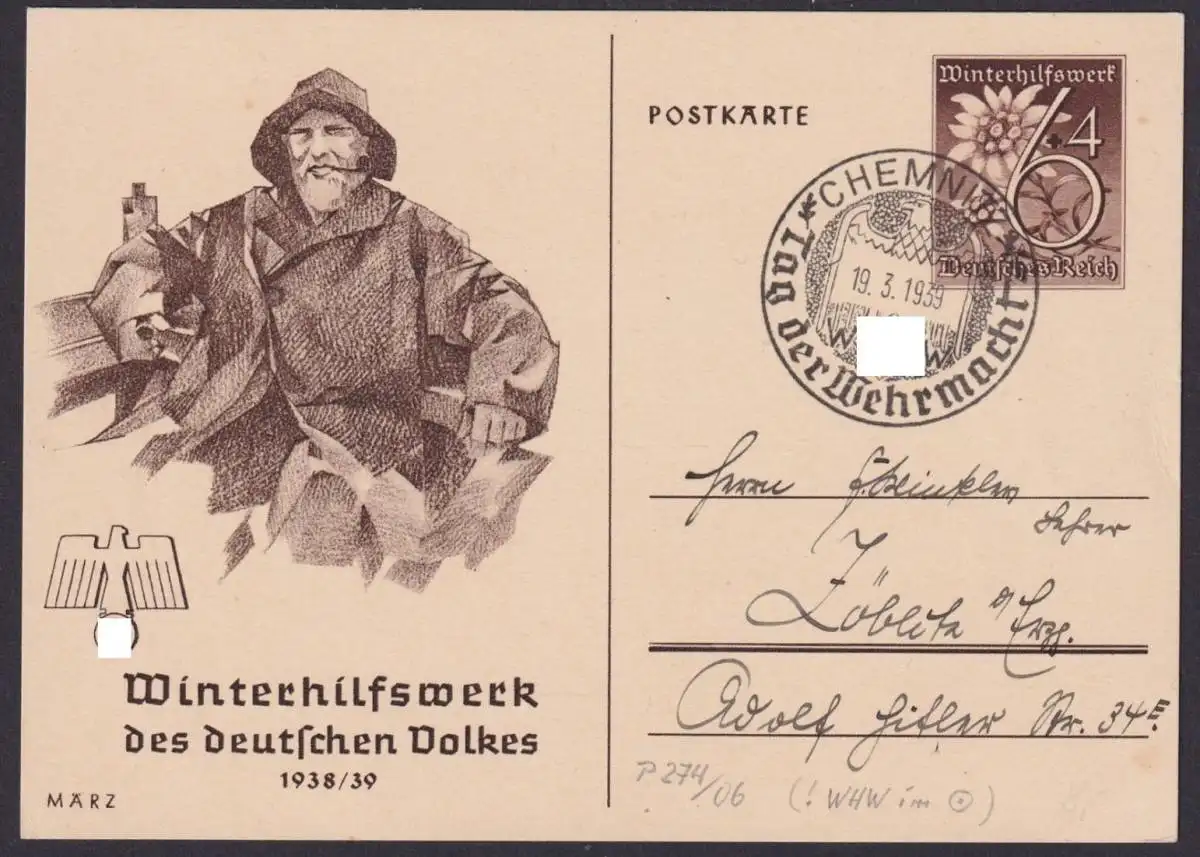 POSTKARTE
Winterhilfswerk
6+4
Deutsches Reich
CHEMNITZ
19. 3. 1939
W W
Tag der Wehrmacht
Herrn F. Winkler
Lehrer
Zöblitz i/Erzg.
Adolf Hitler Str. 34E.
Winterhilfswerk
des deutschen Volkes
1938/39
MÄRZ
P 274/06 (! WHW im ⊙)